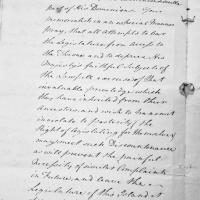 part of His Dominions. Your
Memorialists in an especial Manner
pray, that all attempts to bar
the Legislature from access to
the Throne and to deprive His
Majesty's faithful Subjects of
the Benefit exercise of that
invaluable priviledge which
they have inherited from their
Ancestors and wish to transmit
inviolate to posterity of the
Right of Legislating for themselves
may meet such Discountenance
as will prevent the painful
Necessity of similar Complaints
in future, and leave the
Legislature of this Island at